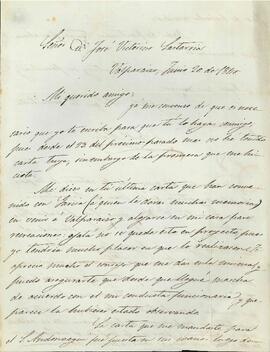 Señor Dn. José Victorino Lastarria
Valparaiso, Junio 20 de 18
Mi querido amigo:
yo me convenzo de que es nece-
sario que yo te escriba para que tú lo hagas conmigo,
pues desde el 23 del proximo pasado mes no he tenido
carta tuya, sin embargo de la promesa que me hi-
ciste.
Me dices en tu última carta que han conve-
nido con (a quien le darás muchas memorias)
en venir á Valparaiso y alojarse en mi casa para
recrearse; ojalá no se quede esto en proyecto pues
yo tendria mucho placer en que lo realizasen. Te
aprecio mucho el consejo que me das en la misma, y
puedo asegurarte que desde que llegué marcho
de acuerdo con él mi conducta funcionaria, y que
parece la hubieras estado observando.
La carta que me mandaste para
el S. puse en su mano luego que